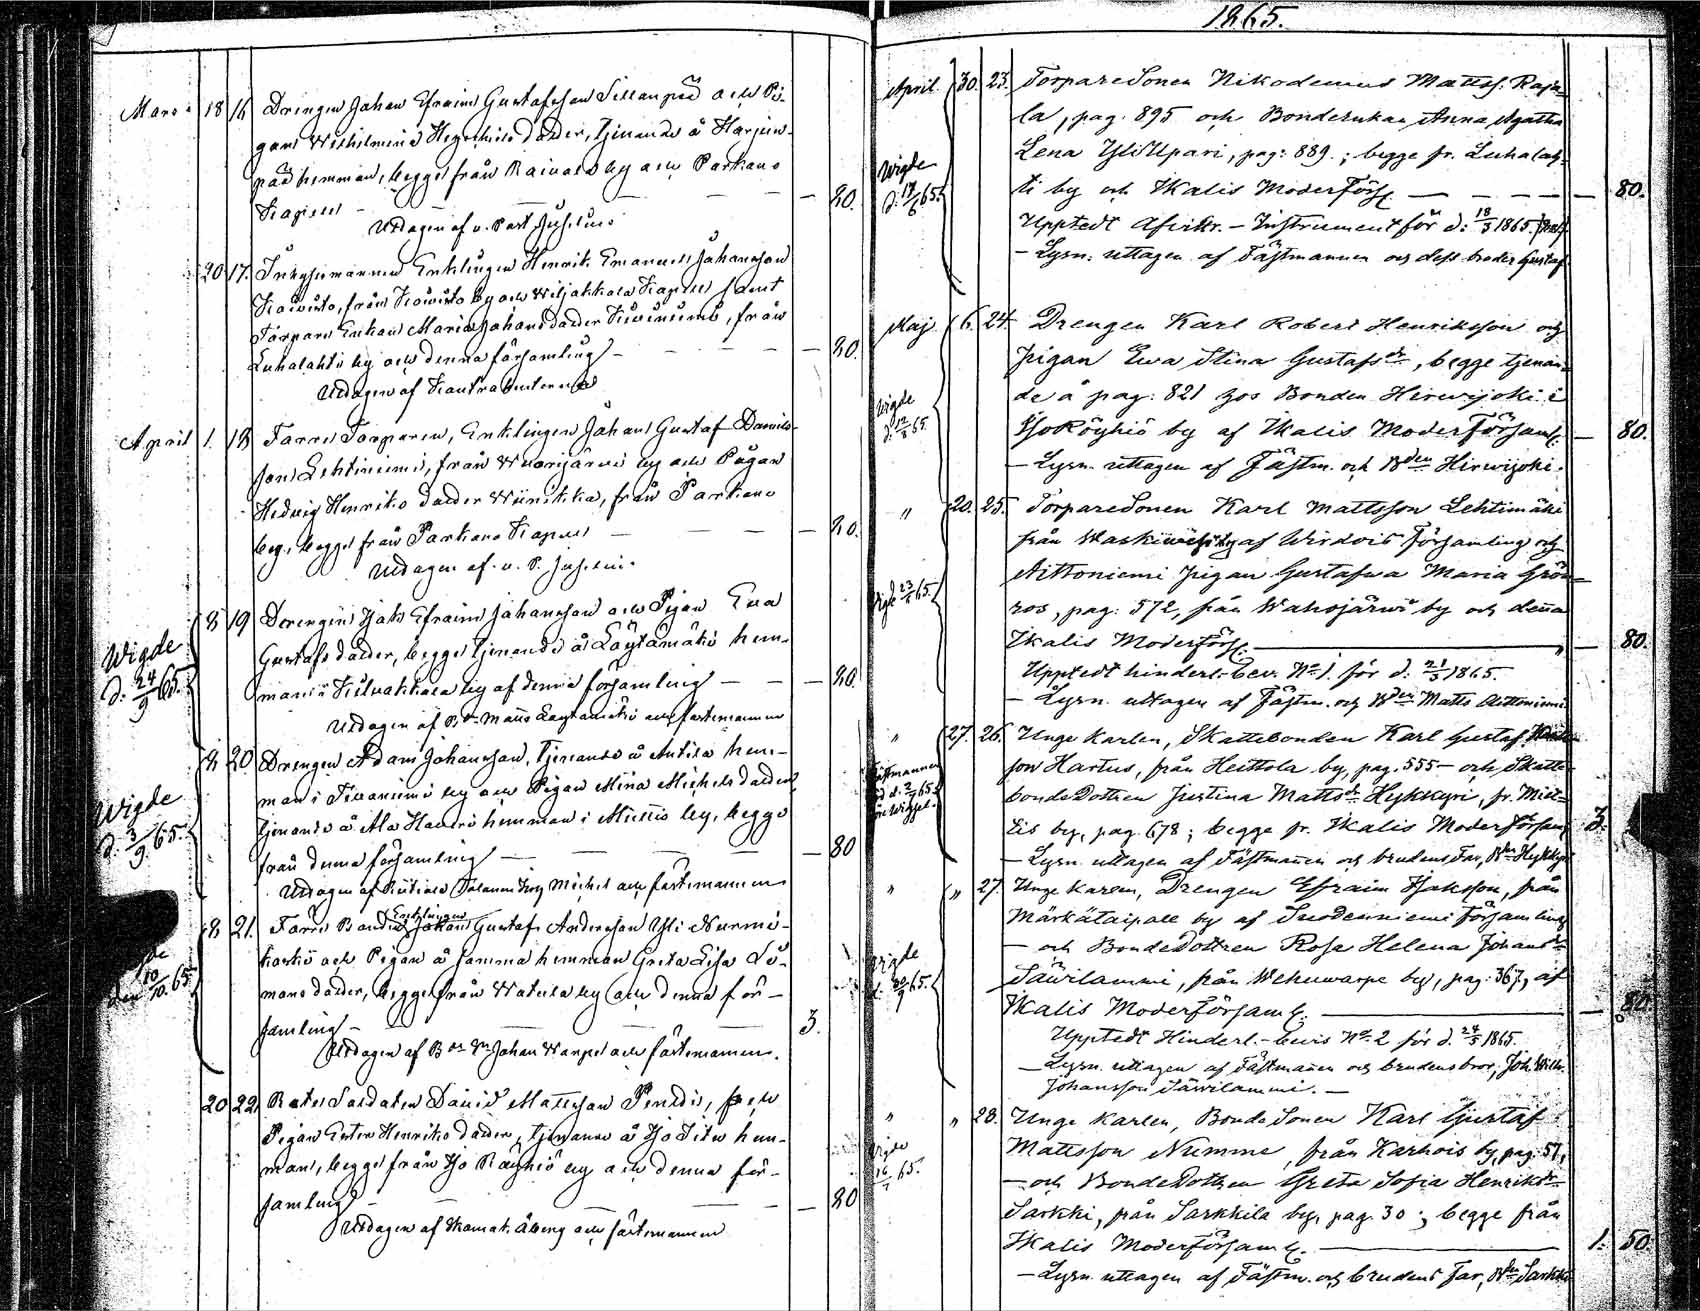 1865.
Mars 18 16 Drengen Johan Efraim Gustafsson Sillanpää och Pi-
gan Wilhelmina Hegesdotter, tjenande å Harjun-
pää hemman, begge från Rainats by och Parkano
Kapell — 80.
Uttagen af v. Past. Juselius
20 17. Inhysmannen Enklingen Henrik Emanuel Johansson
Koiwisto, från Koiwisto by och Wiljakkala Kapell samt
Torpare Enkan Maria Johansdotter Kiwiniemi, från
Luhalahti by och denna församling — 80.
Uttagen af Kontrahenterna
April 1. 18 Torparen, Enklingen Johan Gustaf Daniels-
son Lehtiniemi, från Wuorijärwi by och Pigan
Hedvig Henriksdotter Wiinikka, från Parkano
by, begge från Parkano Kapell — 80.
Uttagen af v. P. Juselius
Wigde d. 24/9 65.
8 19 Drengen Isak Efraim Johansson och Pigan Eva
Gustafsdotter, begge tjenande å Laytämäki hem-
man i Kilwakkala by af denna församling — 80.
Uttagen af Bdn Matts Laytämäki och fästemannen
Wigde d. 3/9 65.
8 20 Drengen Adam Johansson, tjenande å Anttila hem-
man i Tewaniemi by och Pigan Mina Michelsdotter,
tjenande å Ala Hannri hemman i Miettis by, begge
från denna församling — 80
Uttagen af Michel och fästemannen
den 10/10. 65
8 21. Förre Bonden Enklingen Johan Gustaf Andersson Yli Nurmi-
koski och Pigan å samma hemman Greta Lisa Lo-
mansdotter, begge från Watula by och denna för-
samling — 3.
Uttagen af Bdn Johan Wanpel och fästemannen.
20 22. Rote Soldaten David Mattsson Penttis, och
Pigan Ester Henriksdotter, tjenande å Iso Titu hem-
man, begge från Iso Röyhiö by och denna för-
samling — 80
Uttagen af Åberg och fästemannen
April 30. 23. TorpareSonen Nikodemus Mattss. Raja-
la, pag. 895 och Bondeenkan Anna Agatha
Lena Yli Upari, pag: 889.; begge fr. Luhalah-
ti by och Ikalis Moderförs. — 80.
Wigde d. 18/6 65.
Upptedt Afvittr. - Instrument för d: 18/3 1865.
- Lysn. uttagen af Fästmannen och dess broder Gustaf
Maj 6. 24. Drengen Karl Robert Henriksson och
pigan Ewa Stina Gustafsdr, begge tjenan-
de å pag: 821 hos Bonden Hirwijoki i
Iso Röyhiö by af Ikalis Moderförsaml. — 80.
Wigde d. 12/8 65.
- Lysn. uttagen af Fästm. och Bden Hirwijoki.
" 20. 25. TorpareSonen Karl Mattsson Lehtimäki
från Waskiwesi by af Wirdois Församling och
Aittoniemi pigan Gustafwa Maria Grön-
roos, pag: 572, från Wahojärwi by och denna
Ikalis Moderförs. — " 80.
Wigde 23/7 65.
Upptedt hinderl.-bev. No 1. för d. 21/5 1865.
- Lysn. uttagen af Fästm. och Bden Matts Aittoniemi
" 27. 26. Unge Karlen, Skattebonden Karl Gustaf
son Hartus, från Heittola by, pag. 555 - och Skatte-
bondeDottren Justina Mattsdr Hykkyri, fr. Miet-
tis by, pag. 678; begge fr. Ikalis Moderförsaml. 3.
Fästmannen
- Lysn. uttagen af Fästmannen och brudens Far, Bden Hykkyri
" " 27. Unge karlen, Drengen Efraim Isaksson, från
Märkätaipale by af Suodenniemi Församling
- och BondeDottren Rosa Helena Johansdr
Säwilammi, från Wehuwarpe by, pag: 367, af
Ikalis Moderförsaml. — 80.
Wigde d. 30/9 65.
Upptedt Hinderl.-bevis No 2 för d. 24/5 1865.
- Lysn. uttagen af Fästmannen och brudens bror, Joh. Wilh.
Johansson Säwilammi. -
" " 28. Unge Karlen, BondeSonen Karl Gustaf
Mattsson Numme, från Karhois by, pag. 57,
- och BondeDottren Greta Sofia Henriksdr
Sarkki, från Sarkkila by, pag. 30; begge från
Ikalis Moderförsaml. — 1. 50.
Wigde 16/7 65.
- Lysn. uttagen af Fästm. och brudens Far, Bden Sarkki